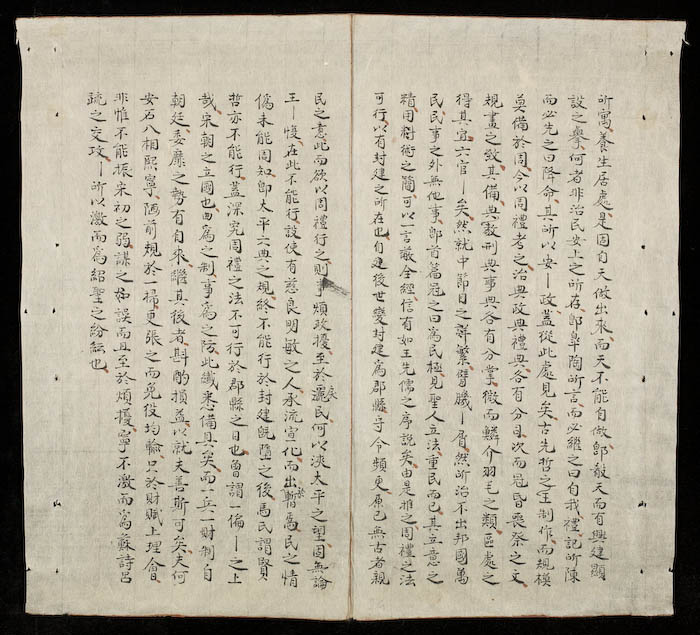 所寓養生居處是固自天做出來而天不能自做郎敬天而有興建顯
設之擧何者非治民安上之所存郎皐陶所言而必繼之曰自我禮記所陳
而必先之曰降命其所以安丨政蓋從此處見矣古先哲之王制作而規模
莫備於周今以周禮考之治典政典禮典各有分自次而冠昏喪祭之文
規畫之致其備典教刑典事典各有分掌微而鱗介羽毛之類區處之
得其宜六官丨矣然就中節目之詳繁臂臆丨屑然所治不出邦國萬
民民事之外無他事郎首篇冠之曰爲民極見聖人立法重民而已其立意之
精用對術之簡可以一言蔽全經信有如王先儒之序説矣由是推之周禮之法
可行以有封建之所在也自建後世變封建爲郡縣守令頻更原已無古者親
民之意此而欲以周禮行之則事煩政擾至於擾民何以淶太平之望固無論
王丨悛在此不能行設使有慈良明敏之人承流宣化而出於暫馬民之情
僞未能周知郎太平六典之規終不能行於封建旣隳之後馬氏謂賢
哲亦不能行蓋深究周禮之法不可行於郡縣之日也曾謂一偏丨之上
哉宋朝之立國也曲爲之制事爲之防此纖悉備具矣而一兵一財制自
朝廷委靡之勢有自來繼其後者斟酌損益以就夫善斯可矣夫何
安石入相熙寧隔前規於一掃更張之而免役均輸只於財賦上理會
非惟不能振宋初之弱謀之始誤而且至於煩擾寧不激而爲蘇詩呂
疏之交攻丨所以激而爲紹聖之紛紜也